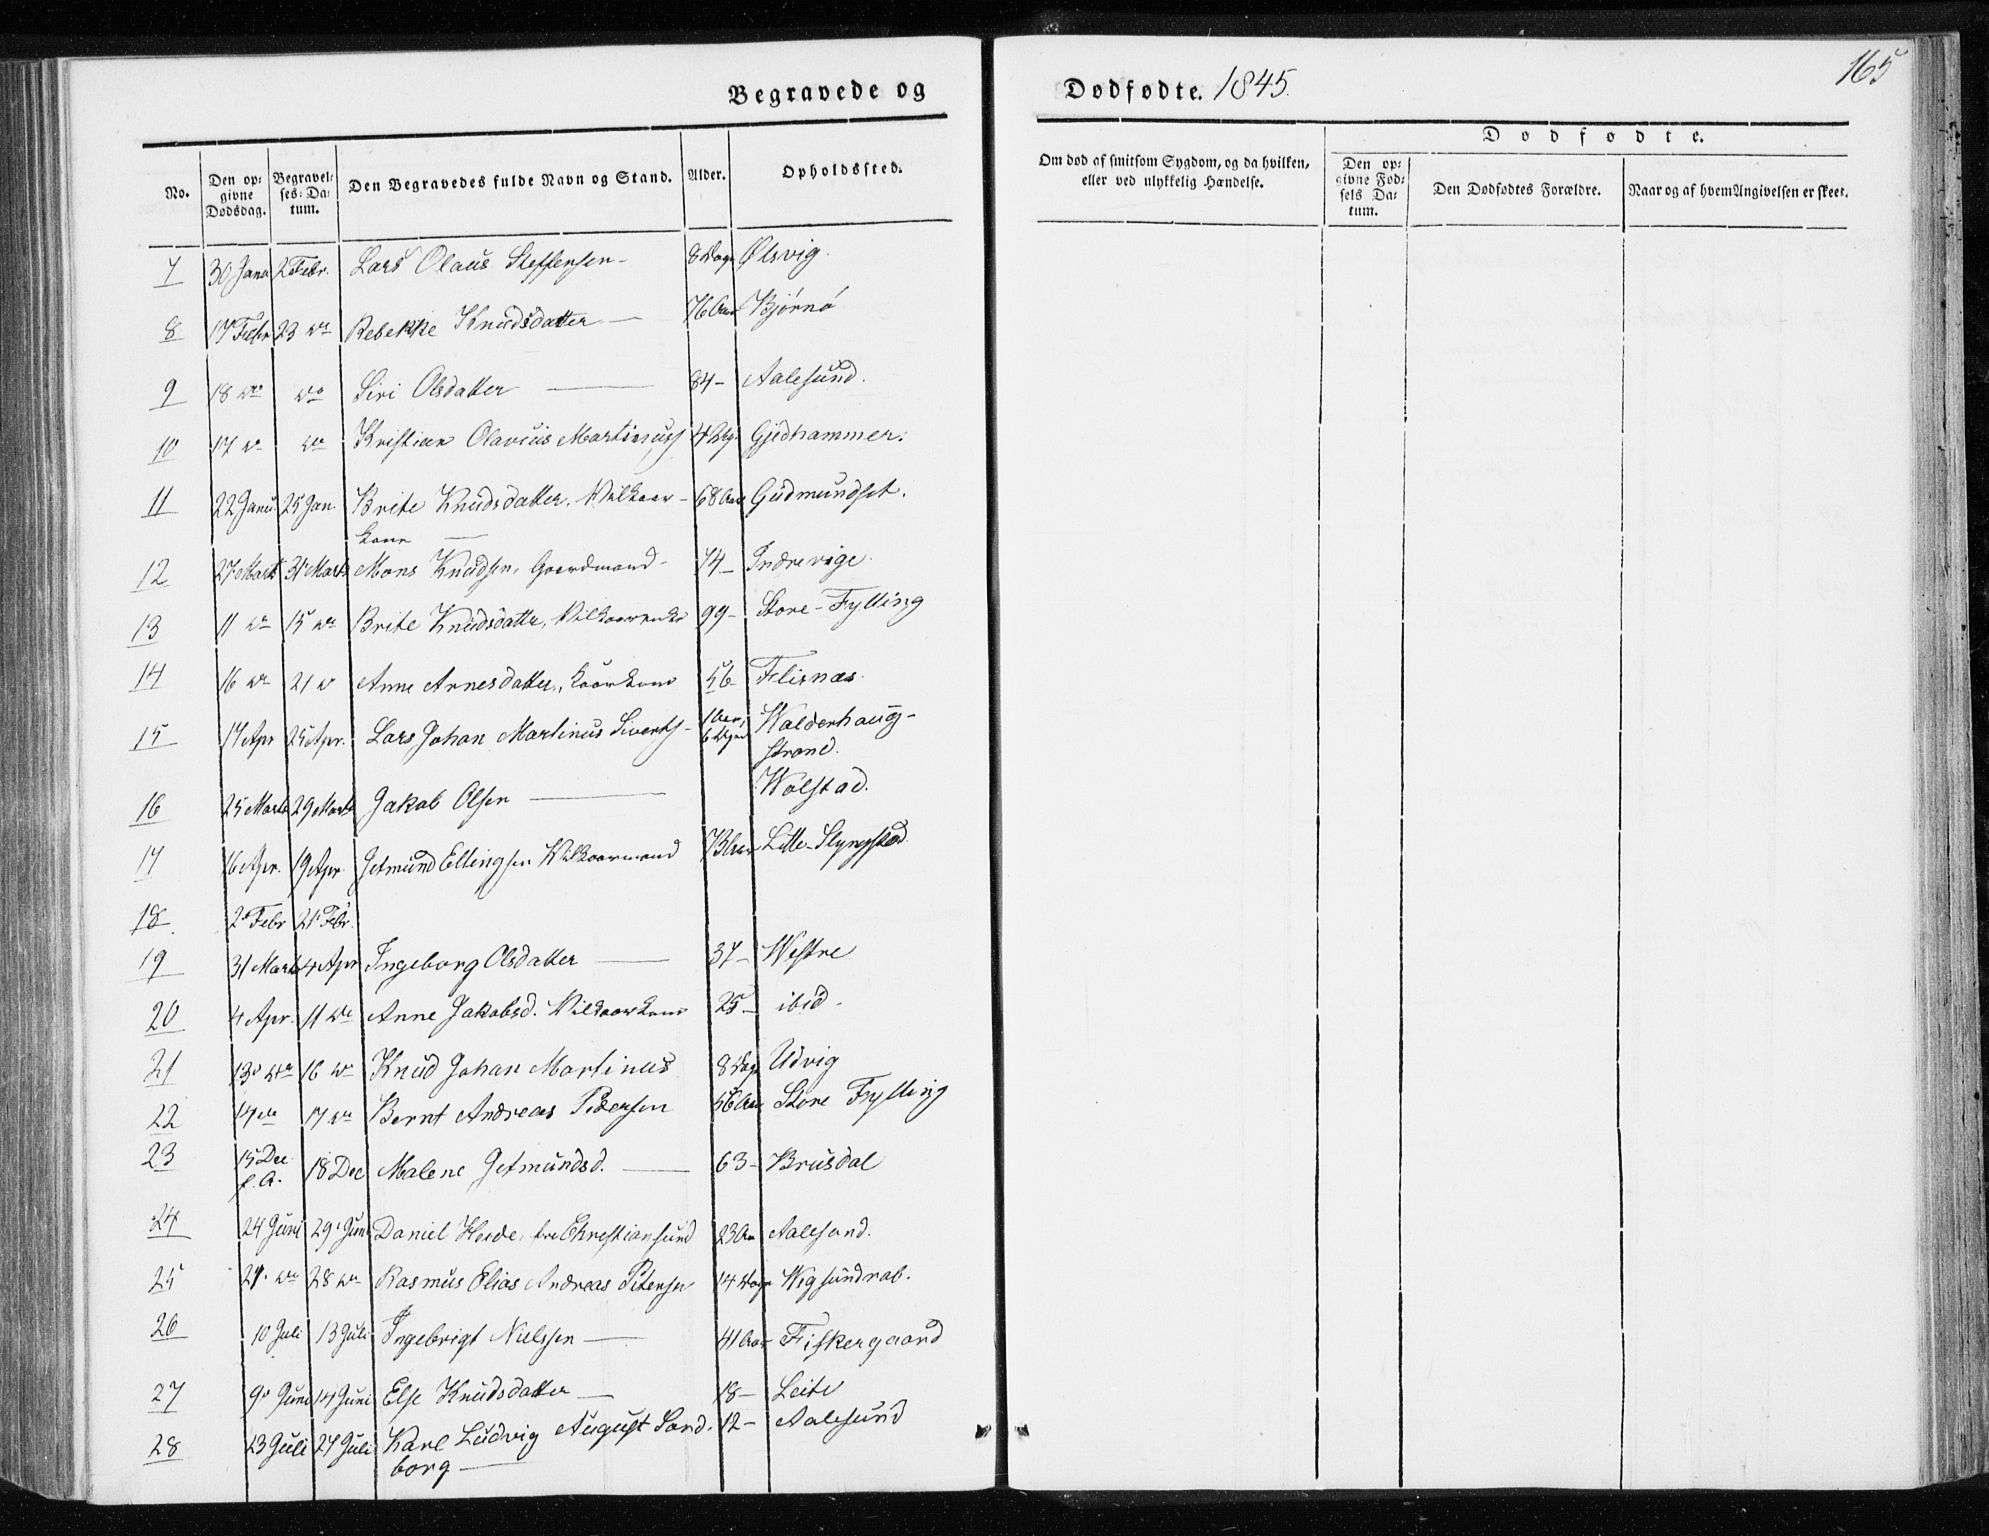 Begravede og Dødfødte. 1845. 165
No. Den opgivne Dødsdag. Begravelses-Datum. Den Begravedes fulde Navn og Stand. Alder. Opholdssted.
Om død af smitsom Sygdom, og da hvilken, eller ved ulykkelig Hændelse.
Dødfødte.
Den opgivne Fødsels Datum. Den Dødfødtes Forældre. Naar og af hvem Angivelsen er skeet.
7 30 Janu 2 Febr. Lars Olaus Steffensen - 8 Dage Ølsvig.
8 17 Febr 23 do Rebekke Knudsdatter — 76 Aar Bjørnø
9 18 do do Siri Olsdatter — 84 - Aalesund.
10 17 do do Kristian Olavius Martinuss 4 Gjedhammer.
11 22 Janu 25 Jan. Brite Knudsdatter, Vilkaar- 68 Aar Gudmundset.
kone —
12 27 Marts 31 Marts Mons Knudsen, Gaardmand - 74 - Indrevige
13 11 do 15 do Brite Knudsdatter, Vilkaarenke 99 - Store-Fylling
14 16 do 21 d Anne Arnesdatter, Kaarkone 56 Flisnæs.
15 17 Apr 25 Apr. Lars Johan Martinus Siverts - 1 Aar, Walderhaug-
6 strand.
16 25 Marts 29 Marts Jakob Olsen — Wolstad.
17 16 Apr. 19 Apr. Jetmund Ellingsen Vilkaarmand 73 Aar Litle-Slyngstad
18 2 Febr 21 Febr.
19 31 Marts 4 Apr Ingeborg Olsdatter — 37 - Westre
20 4 Apr. 11 do Anne Jakobsd. Vilkaarkone 25 - ibid.
21 13 do 16 do Knud Johan Martinus 8 Dage Udvig
22 14 do 17 do Bernt Andreas Pedersen 56 Aar Store Fylling
23 15 Dec. f. A. 18 Dec Malene Jetmundsd. — 63 - Brusdal
24 24 Juni 29 Juni Daniel Heide, fra Christiansund 23 Aa Aalesund.
25 21 do 28 do Rasmus Elias Andreas Petersen 14 Dage Wegsundrab.
26 10 Juli 13 Juli Ingebrigt Nielssen — 41 Aar Fiskergaard
27 9 Juni 14 Juni Else Knudsdatter — 18 - Leite
28 23 Juli 27 Juli Karl Ludvig August Sand- 12 - Aalesund
borg —